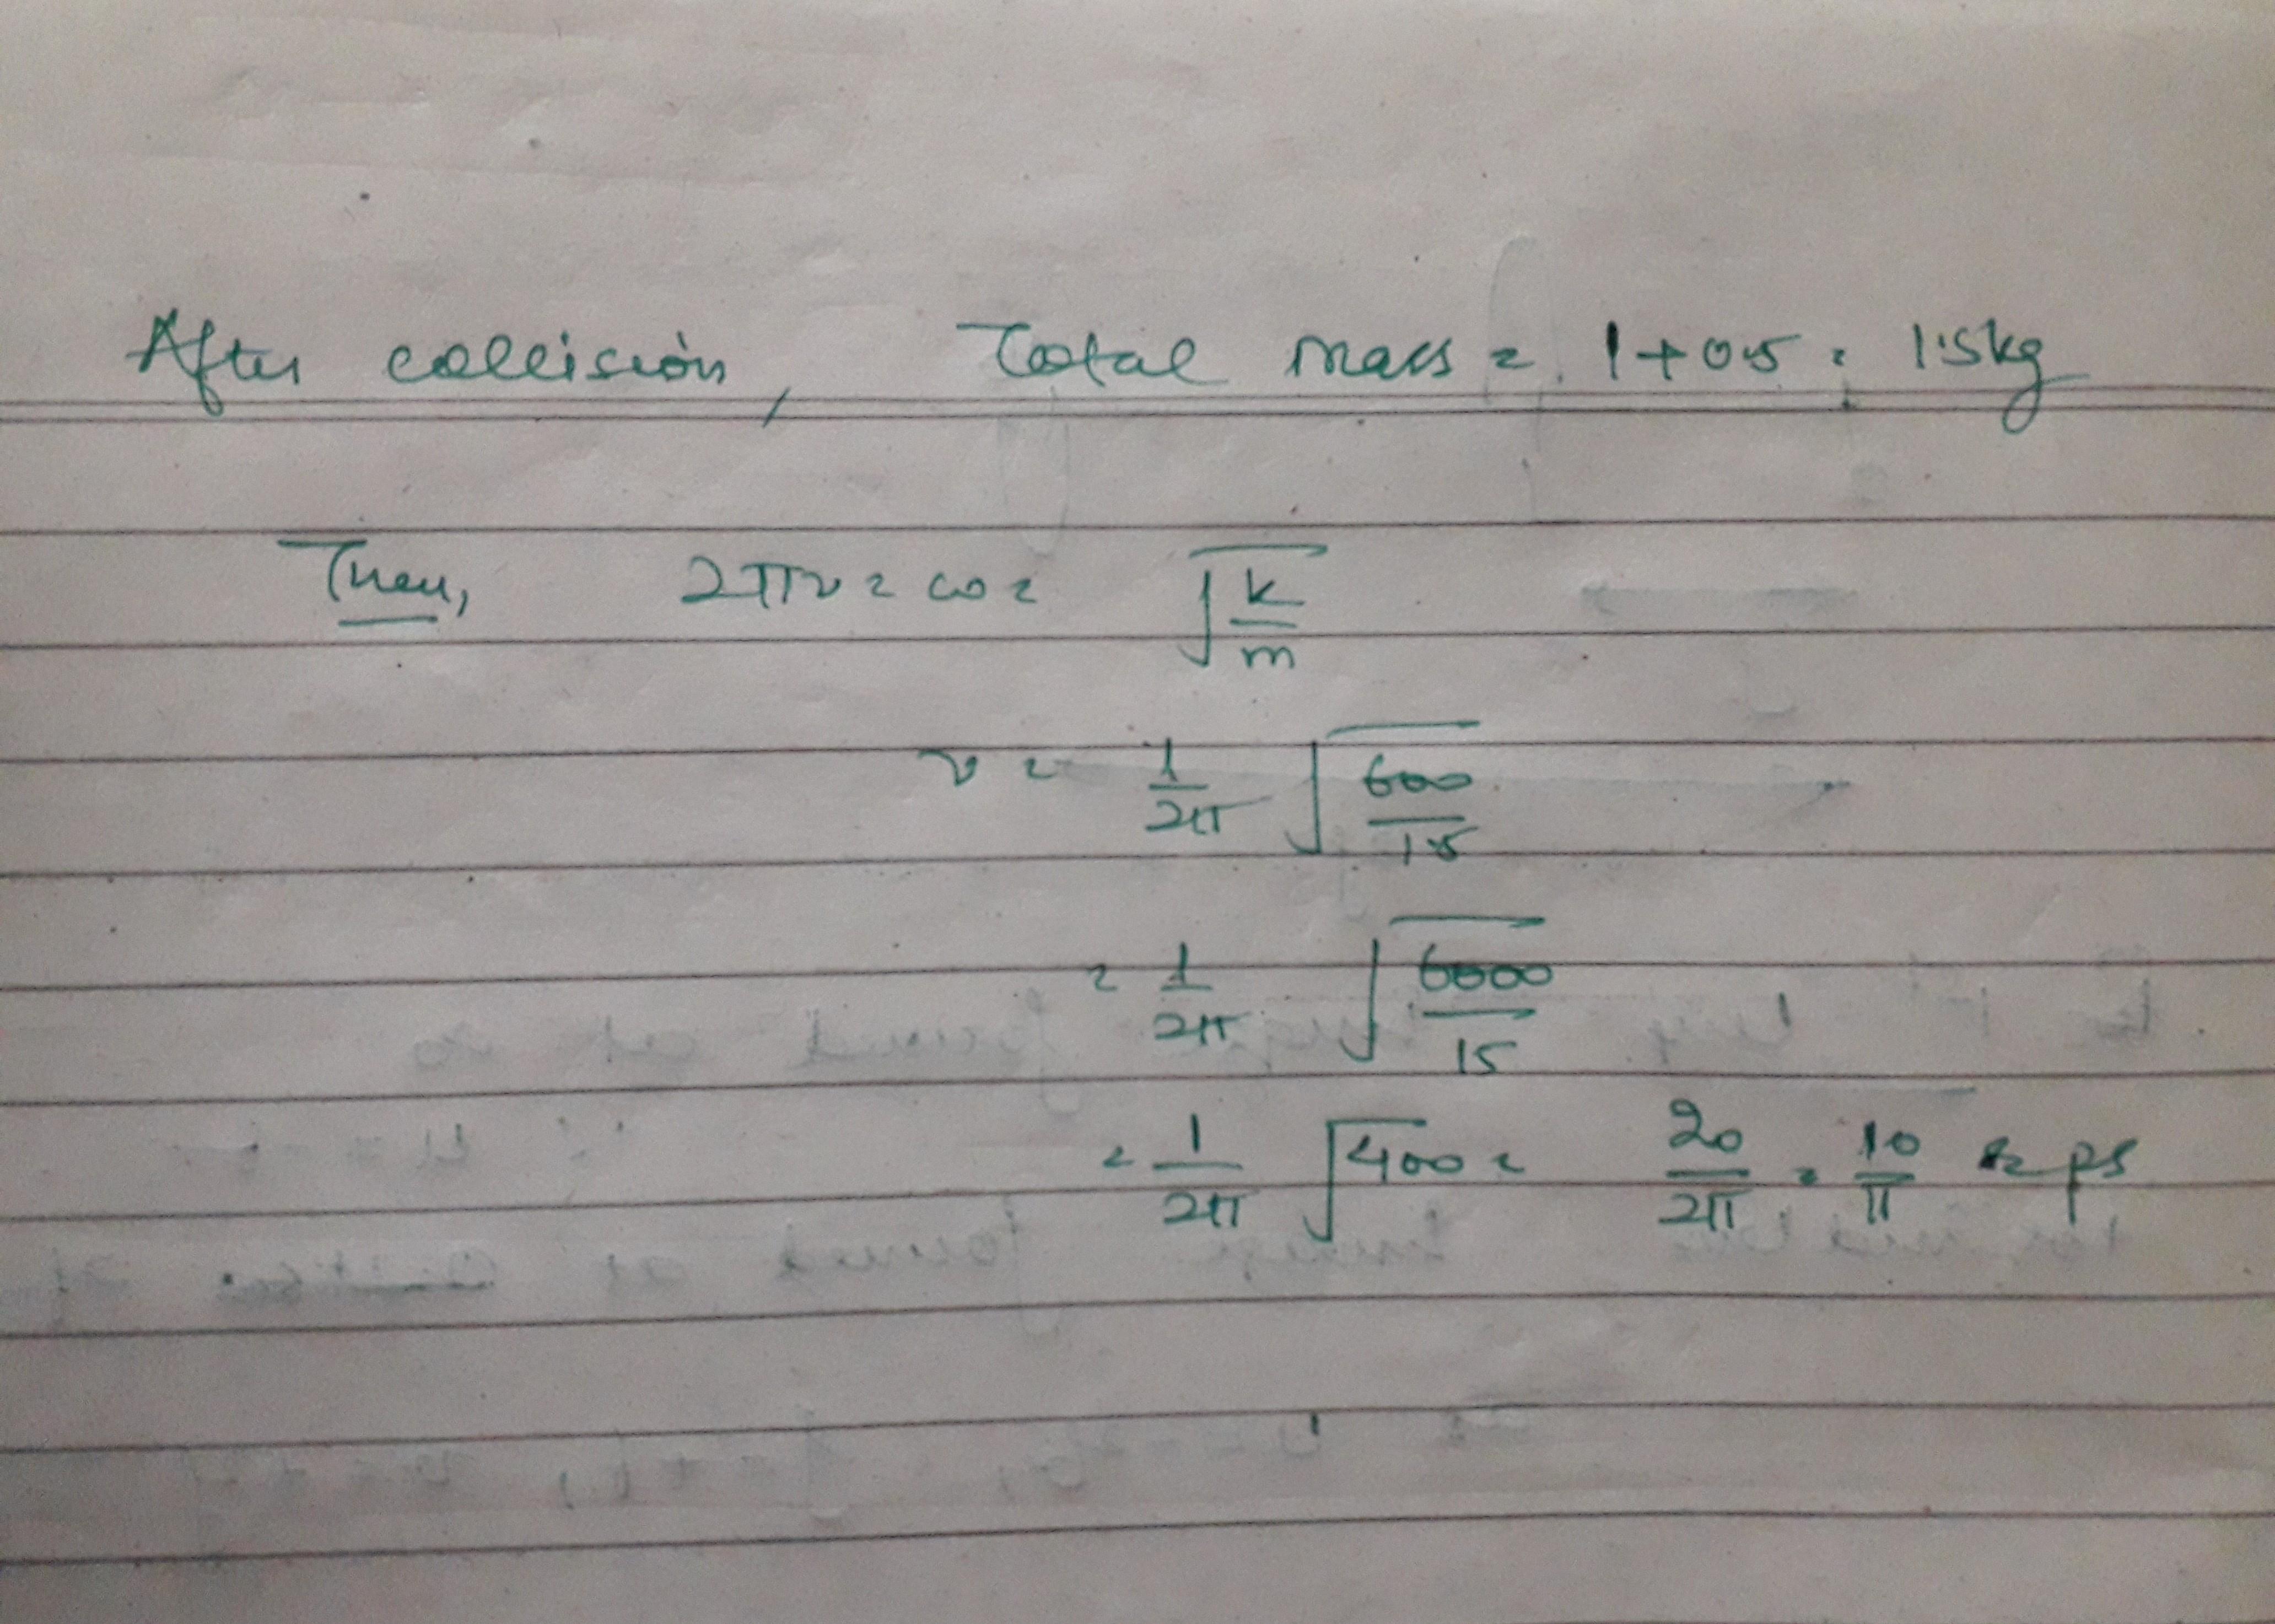 After collision, Total mass = 1+0.5 = 1.5kg
Then, 2πν = ω = √(k/m)
ν = 1/2π √(600/1.5)
= 1/2π √(6000/15)
= 1/2π √400 = 20/2π = 10/π